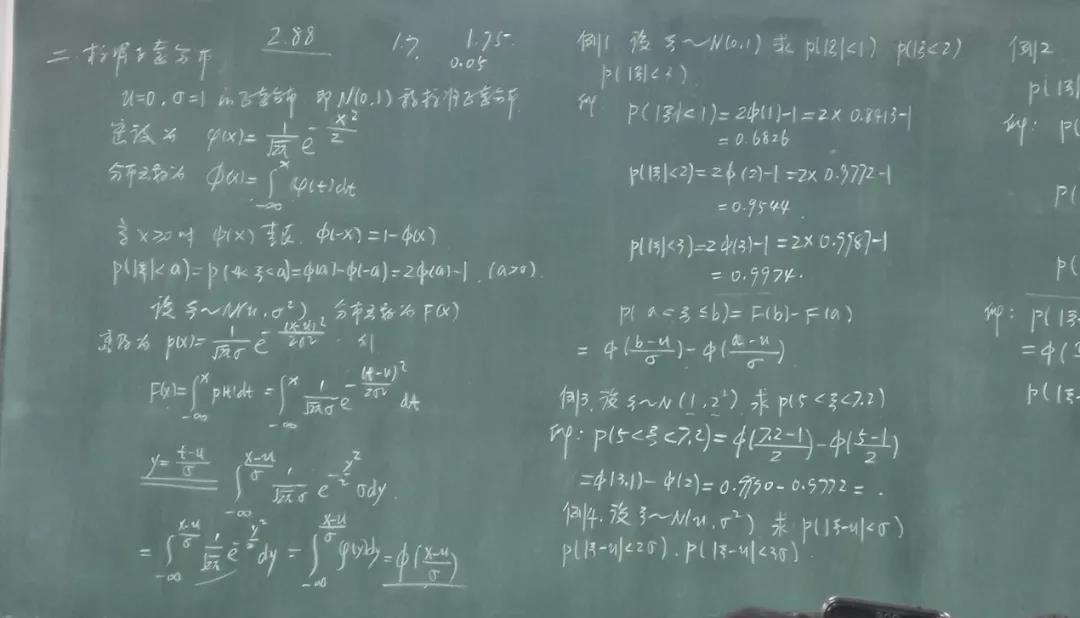 2.88
1.7
1.75
0.05
二.标准正态分布
u=0, σ=1 的正态分布,即N(0,1)称标准正态分布
密度为 φ(x)=1/√2π e^{-x²/2}
分布函数为 Φ(x)=∫_{-∞}^{x} φ(t)dt
x≥0时 Φ(x) 查表. Φ(-x)=1-Φ(x)
p(|ξ|<a)=p(-a<ξ<a)=Φ(a)-Φ(-a)=2Φ(a)-1. (a>0).
设ξ~N(u,σ²) 分布函数为F(x)
密度为 p(x)=1/√2πσ e^{-(x-u)²/2σ²}. 则
F(x)=∫_{-∞}^{x} p(t)dt = ∫_{-∞}^{x} 1/√2πσ e^{-(t-u)²/2σ²} dt
y=(t-u)/σ ∫_{-∞}^{(x-u)/σ} 1/√2πσ e^{-y²/2} σdy.
=∫_{-∞}^{(x-u)/σ} 1/√2π e^{-y²/2} dy = ∫_{-∞}^{(x-u)/σ} φ(y)dy = Φ((x-u)/σ)
例1 设ξ~N(0,1) 求 p(|ξ|<1) p(|ξ|<2)
p(|ξ|<3)
解: p(|ξ|<1)=2Φ(1)-1=2×0.8413-1
=0.6826
p(|ξ|<2)=2Φ(2)-1=2×0.9772-1
=0.9544.
p(|ξ|<3)=2Φ(3)-1=2×0.9987-1
=0.9974.
p(a<ξ≤b)=F(b)-F(a)
=Φ((b-u)/σ)-Φ((a-u)/σ)
例3.设ξ~N(1,2²) 求 p(5<ξ<7.2)
解: p(5<ξ<7.2)=Φ((7.2-1)/2)-Φ((5-1)/2)
=Φ(3.1)-Φ(2)=0.9990-0.9772=.
例4.设ξ~N(u,σ²) 求 p(|ξ-u|<σ)
p(|ξ-u|<2σ). p(|ξ-u|<3σ).
例2
p(|ξ
解: p(
p(
解: p(|ξ-
=Φ(
p(|ξ-